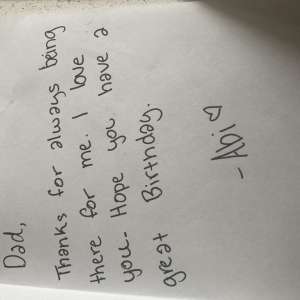 Dad,
Thanks for always being
there for me. I love
you. Hope you have a
great Birthday.
- Abi ♡